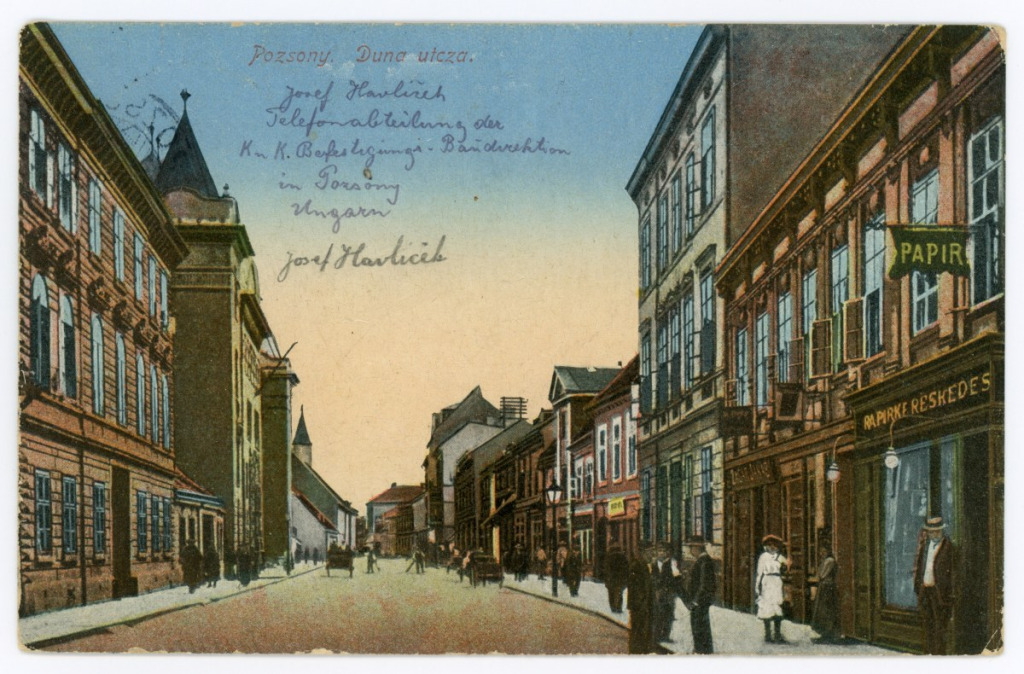 Pozsony. Duna utcza.
Josef Havlizeh
Telefonabteilung der
K u K. Befestigungs-Baudirektion
in Pozsony
Ungarn
Josef Havlíček
PAPIR
PAPIRKERESKEDES